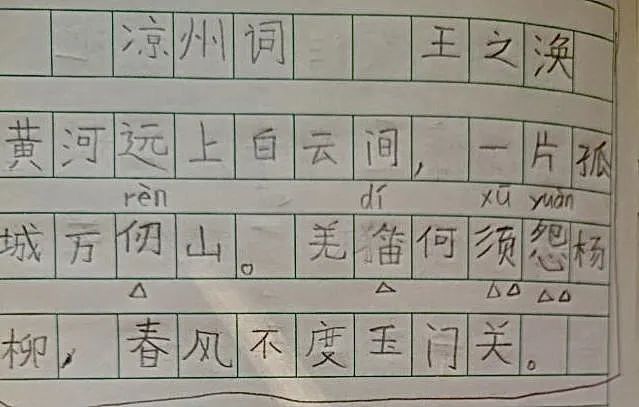 凉州词 王之涣
黄河远上白云间,一片孤
rèn dí xū yuàn
城万仞山。羌笛何须怨杨
△ △ △△ △△
柳,春风不度玉门关。